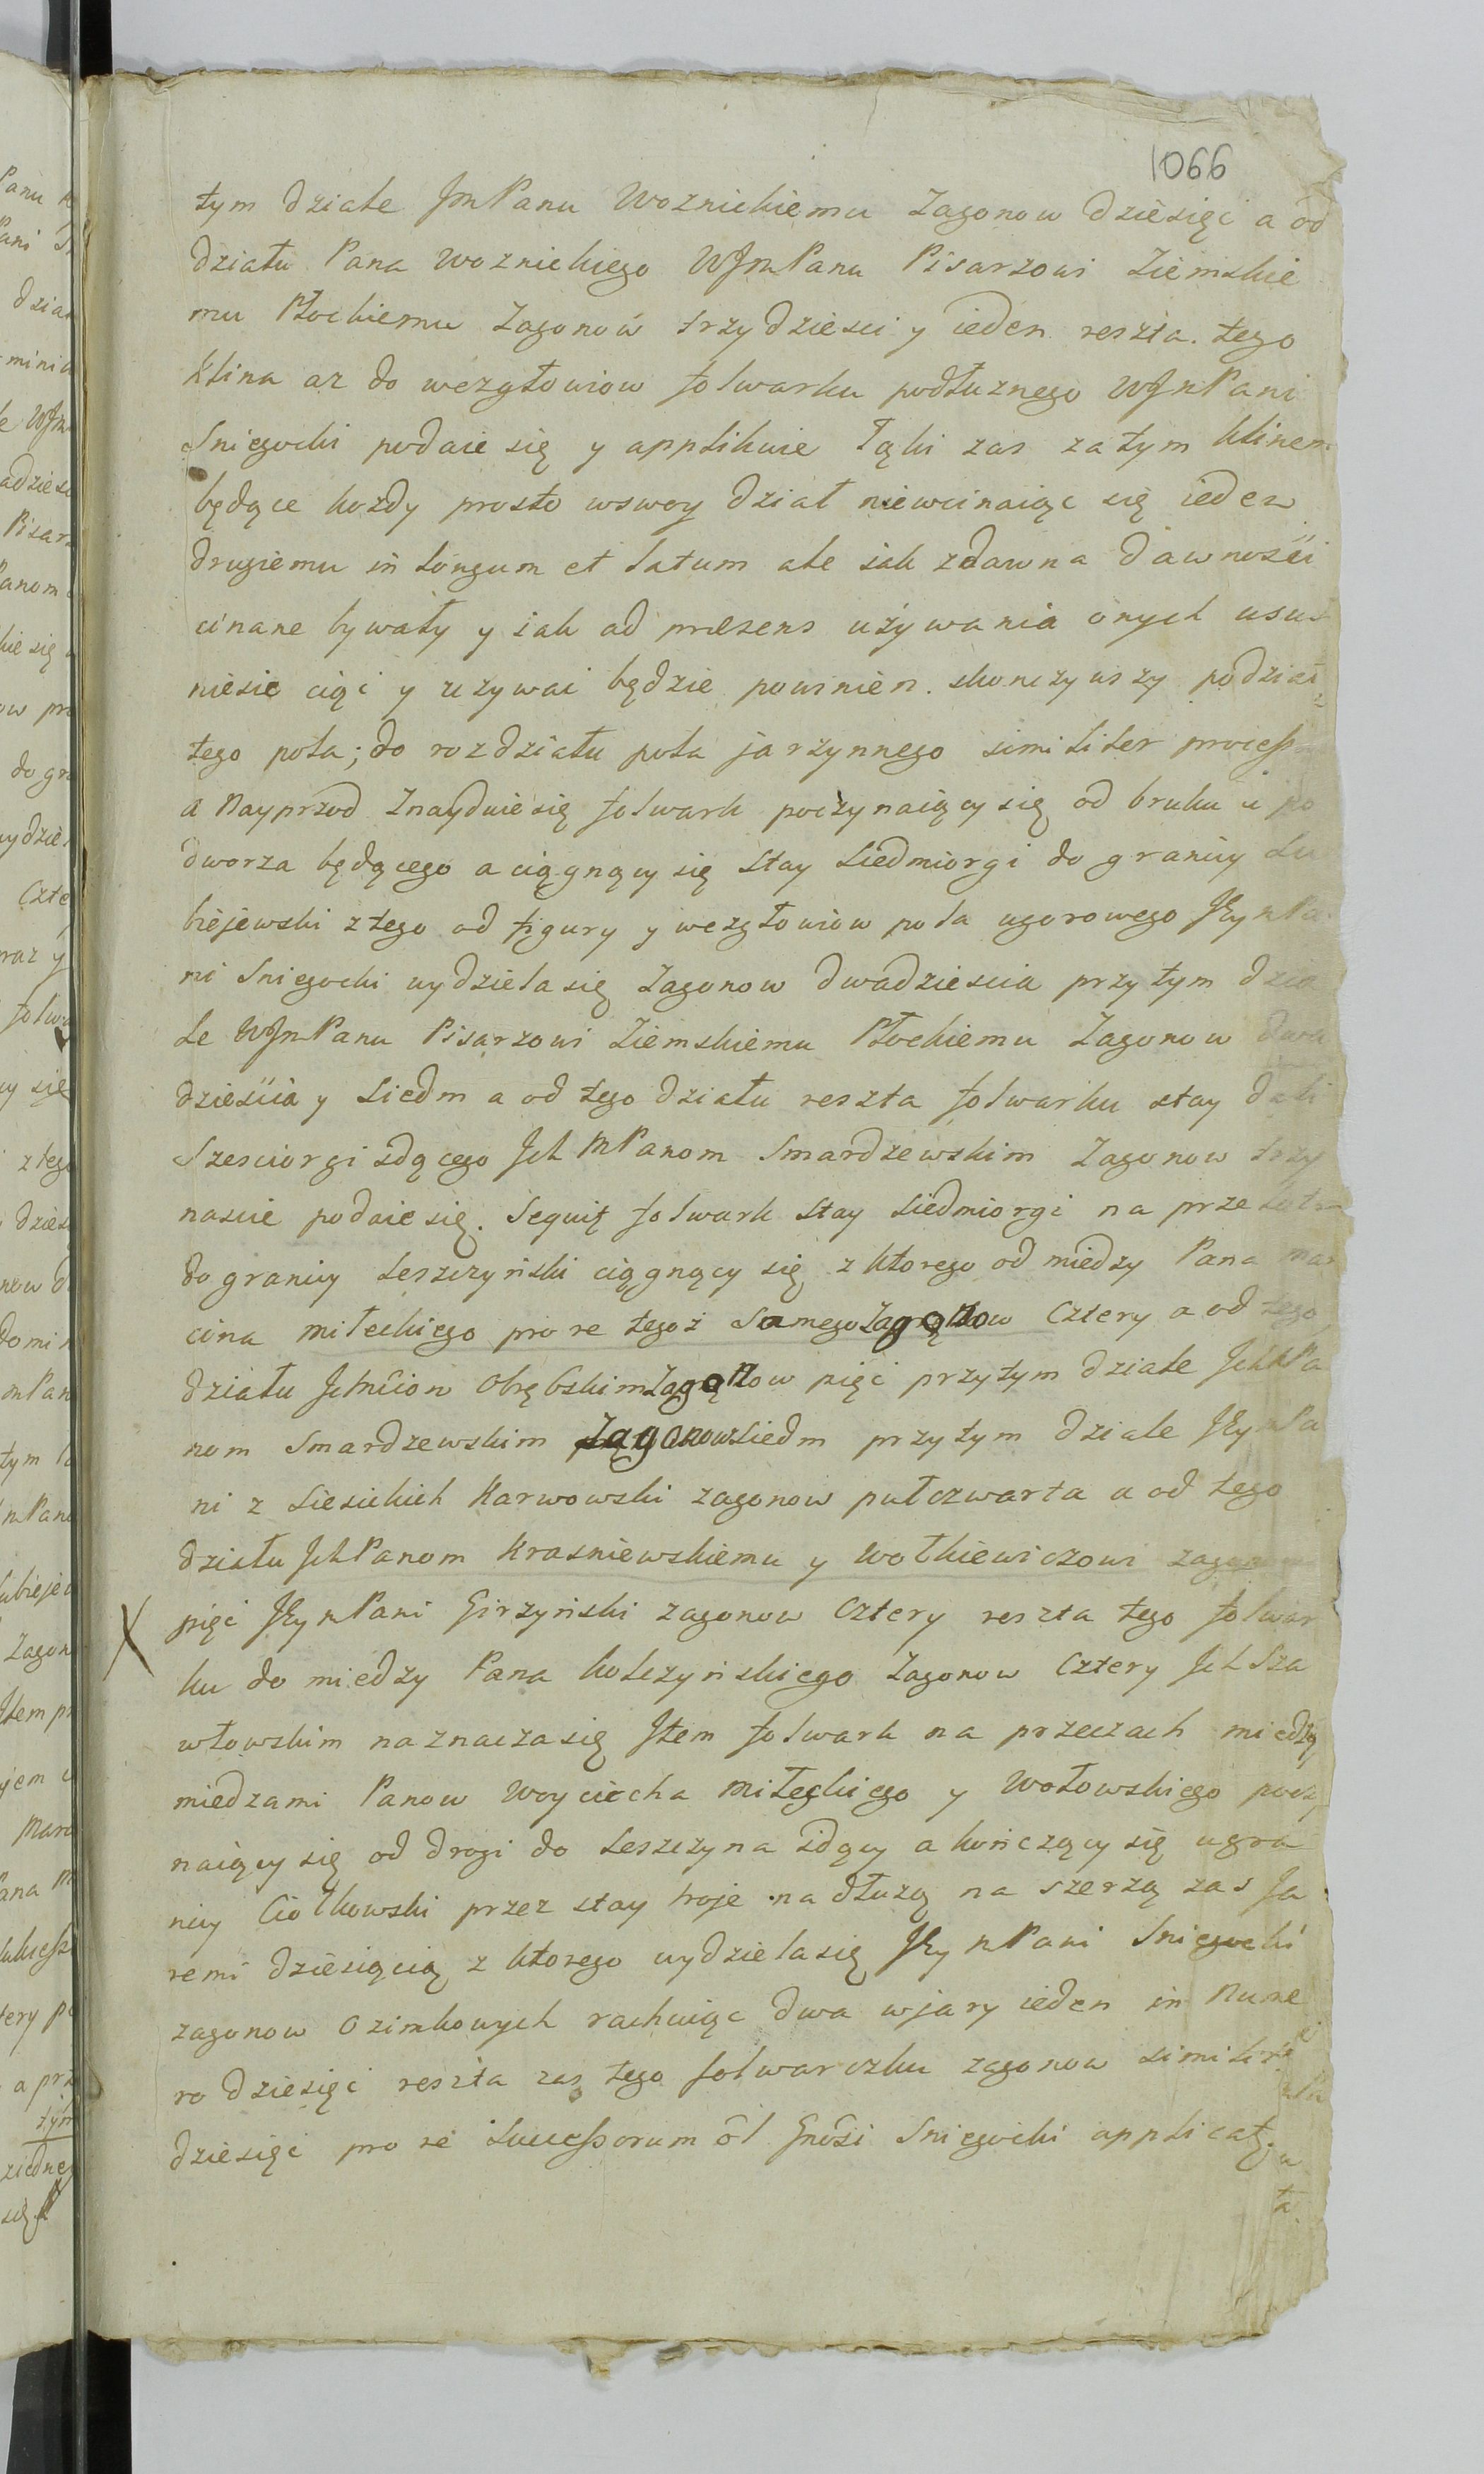 1066
tym dziale JmPanu Woznickiemu Zagonow dziesięć a od
działu Pana Woznickiego WJmPanu Pisarzowi Ziemskie
mu Płockiemu Zagonow trzydziesci y ieden reszta tego
Klina az do wezgłowiow folwarku podłuznego WJmPani
Sniegocki podaie się y applikuie Łąki zas za tym klinem
będące kozdy prosto wswoy dział niewcinaiąc się ieden
drugiemu in longum et latum ale iak zdawna dawnosci
cinane bywały y iak ad præsens używania onych usus
niesie ciąć y uzywać będzie powinien. skonczywszy podział
tego pola; do rozdziału pola jarzynnego similiter
a Nayprzod Znayduie się folwark poczynaiący się od bruku u po
dworza będącego a ciągnący się Stay Siedmiorgi do granicy Lu
biejewski z tego od figury y wezgłowiow pola ugorowego JEymPa
ni Sniegocki wydziela się Zagonow dwadziescia przytym dzia
le WJmPanu Pisarzowi Ziemskiemu Płockiemu Zagonow dwa
dziescia y Siedm a od tego działu reszta folwarku stay dali
Szesciorgi idącego Jch MPanom Smardzewskim Zagonow trzy
nascie podaie się. Sequitę folwark Stay Siedmiorgi na
do granicy Leszczyński ciągnący się z ktorego od miedzy Pana Mar
cina Miłeckiego pro re tegoż Samego Zagonow Cztery a od tego
działu JchmCiom Obrębskim Zagonow pięć przytym dziale JchMPa
nom Smardzewskim Zagonow Siedm przytym dziale JEymPa
ni z Siesickich Karwowski zagonow pułczwarta a od tego
działu JchPanom Krasniewskiemu y Wołkiewiczowi zagonow
pięć JEymPani Girzyński zagonow Cztery reszta tego folwar
ku do miedzy Pana Kolczyńskiego Zagonow Cztery Jch Sza
włowskim naznacza się Jtem folwark na przeczach między
miedzami Panow Woyciecha Miłeckiego y Wołowskiego poczy
naiący się od drogi do Leszczyna idący a kończący się u gra
nicy Ciołkowski przez stay troje na dłużą na szerzą zas Ja
remi dziesiącią z ktorego wydziela się JEymPani Sniegocki
zagonow ozimkowych rachuiąc dwa w jary ieden in Nume
ro dziesięć reszta zas tego folwarczku zagonow similiter
dziesięć pro re Successorum ol Gnosi Sniegocki applicatę.